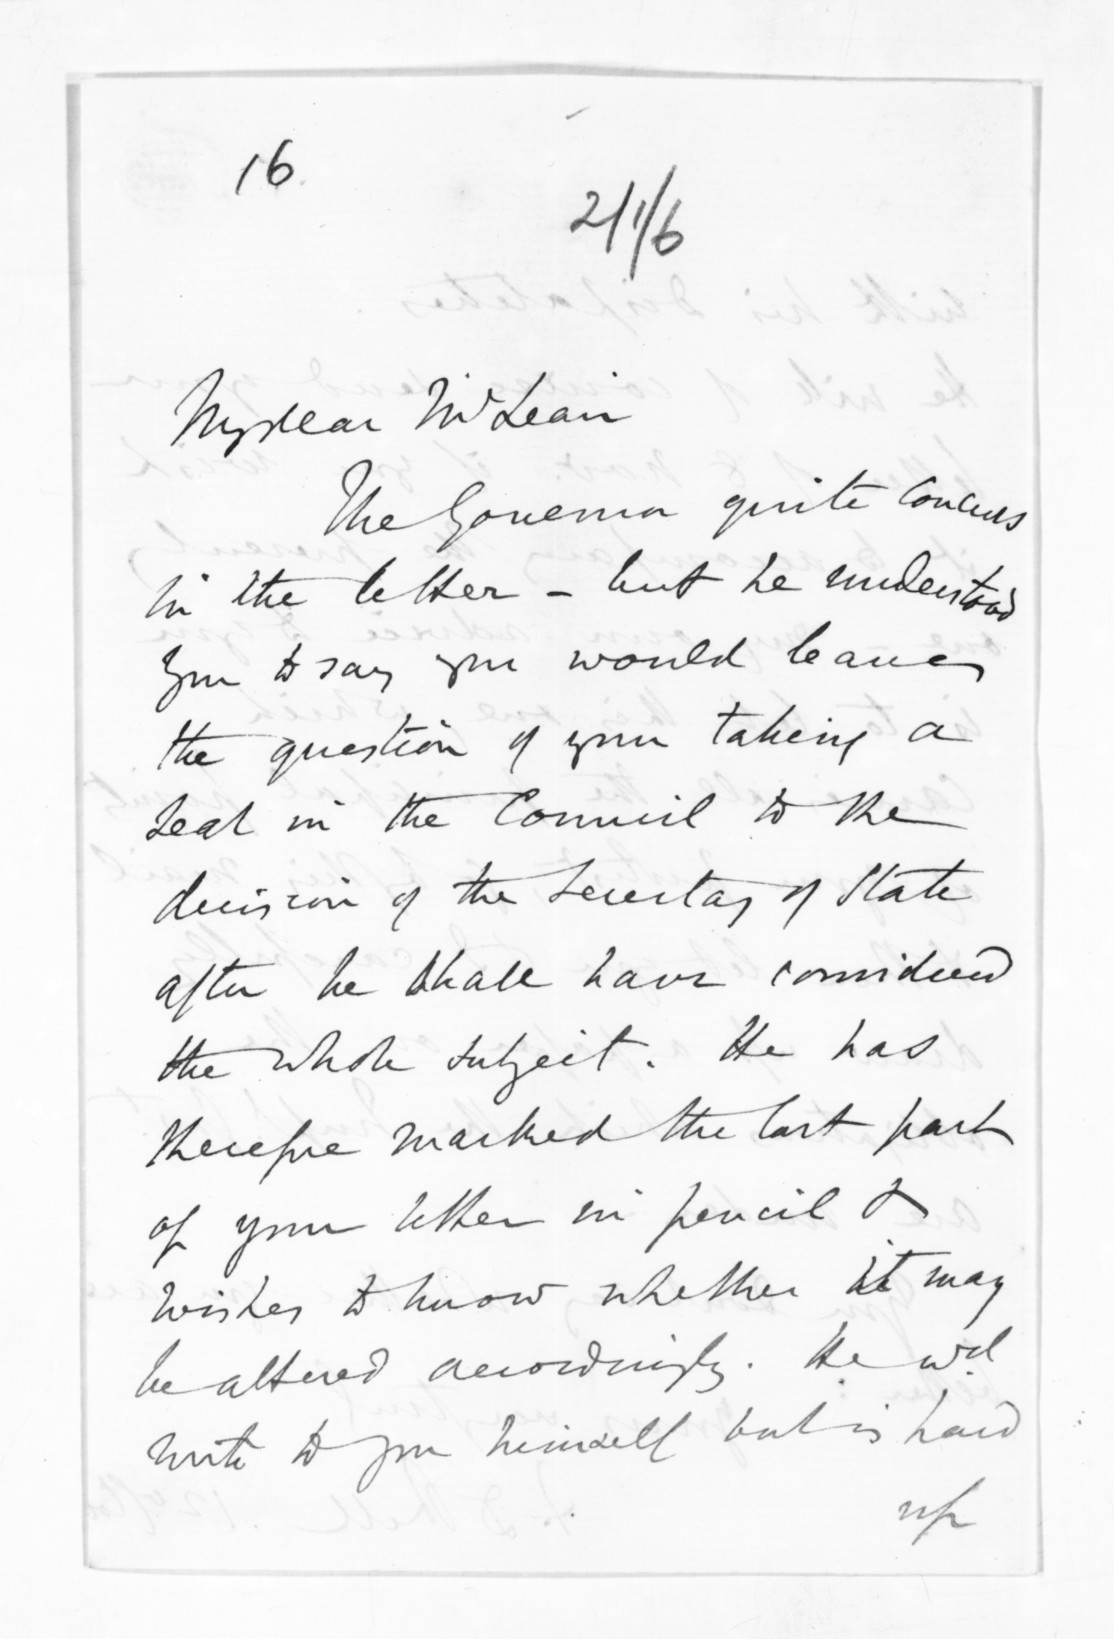 16
2/1/6
My dear McLean
The Governor quite concurs
in the letter - but he understood
you to say you would leave
the question of your taking a
seat in the Council to the
decision of the Secretary of State
after he shall have considered
the whole subject. He has
therefore marked the last part
of your letter in pencil &
wishes to know whether it may
be altered accordingly. He wd
write to you himself but is hard
up